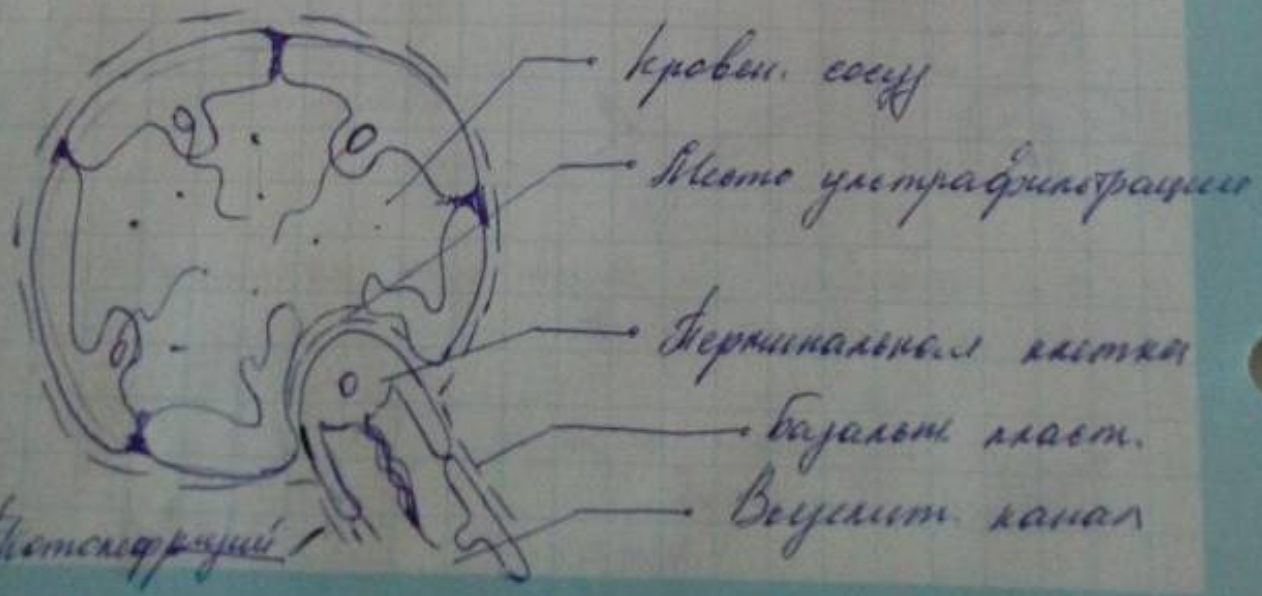 Кровен. сосуд
Место ультрафильтрации
Терминальная клетка
Базальн. пласт.
Выделит. канал
Протонефридий